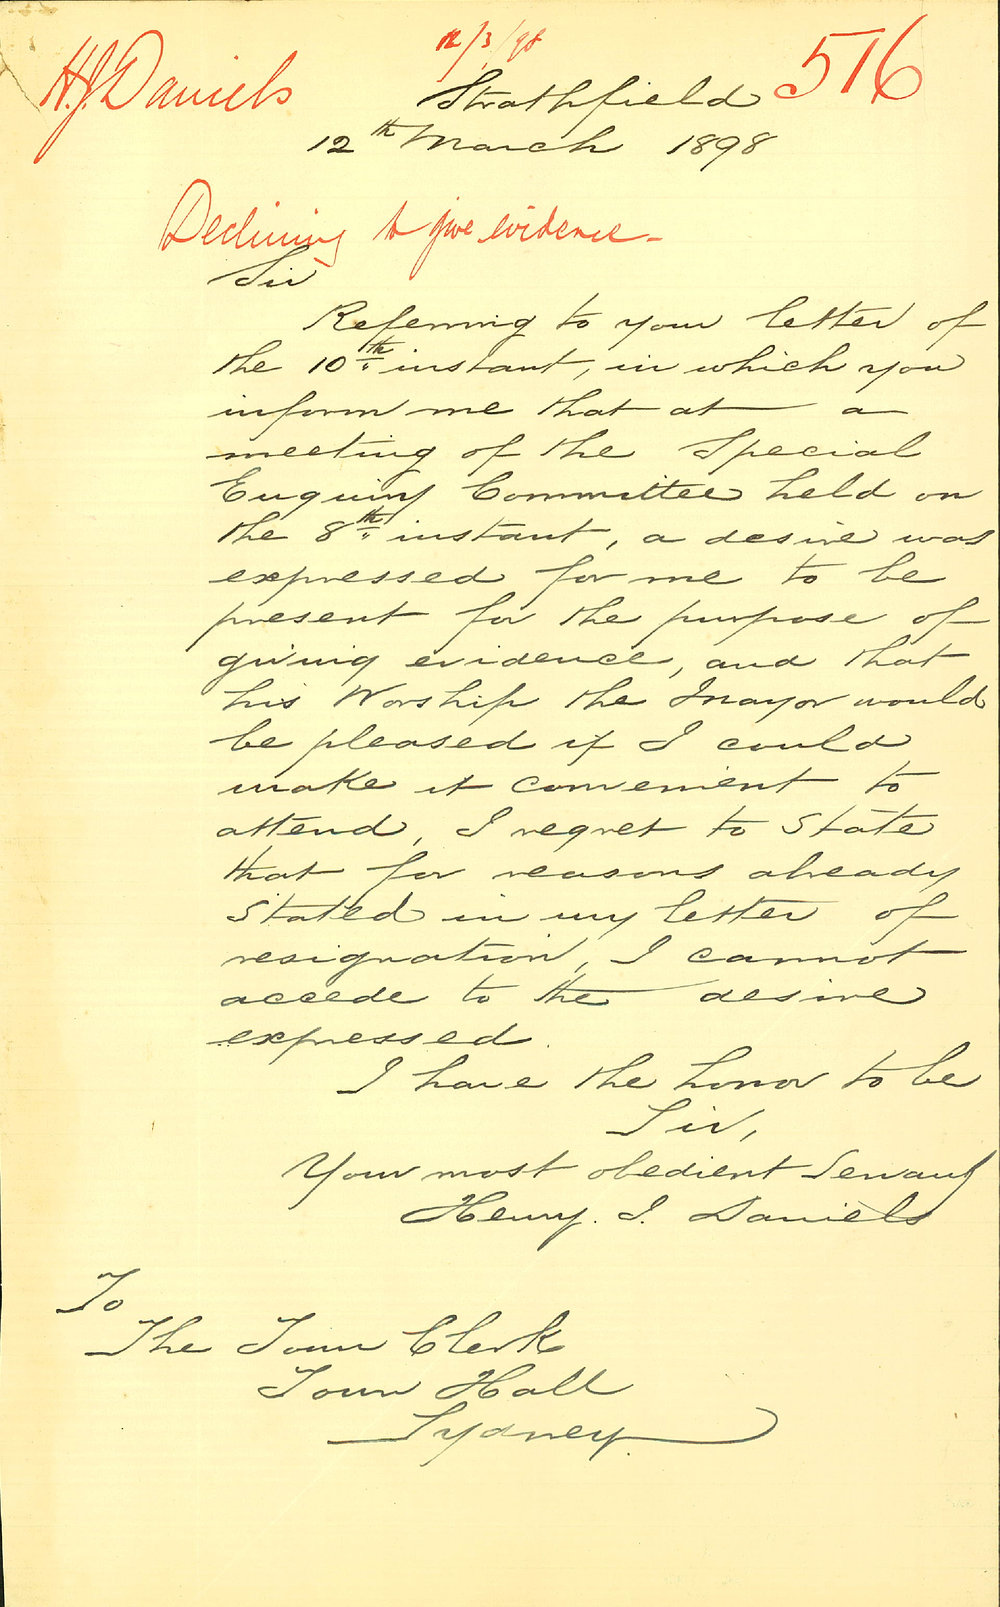 12/3/98
H.J. Daniels
516
Strathfield
12th March 1898
Declining to give evidence -
Sir
Referring to your letter of
the 10th instant, in which you
inform me that at a
meeting of the Special
Enquiry Committee held on
the 8th instant, a desire was
expressed for me to be
present for the purpose of
giving evidence, and that
his Worship the Mayor would
be pleased if I could
make it convenient to
attend, I regret to state
that for reasons already
stated in my letter of
resignation, I cannot
accede to the desire
expressed.
I have the honor to be
Sir,
Your most obedient Servant
Henry. J. Daniels
To
The Town Clerk
Town Hall
Sydney.